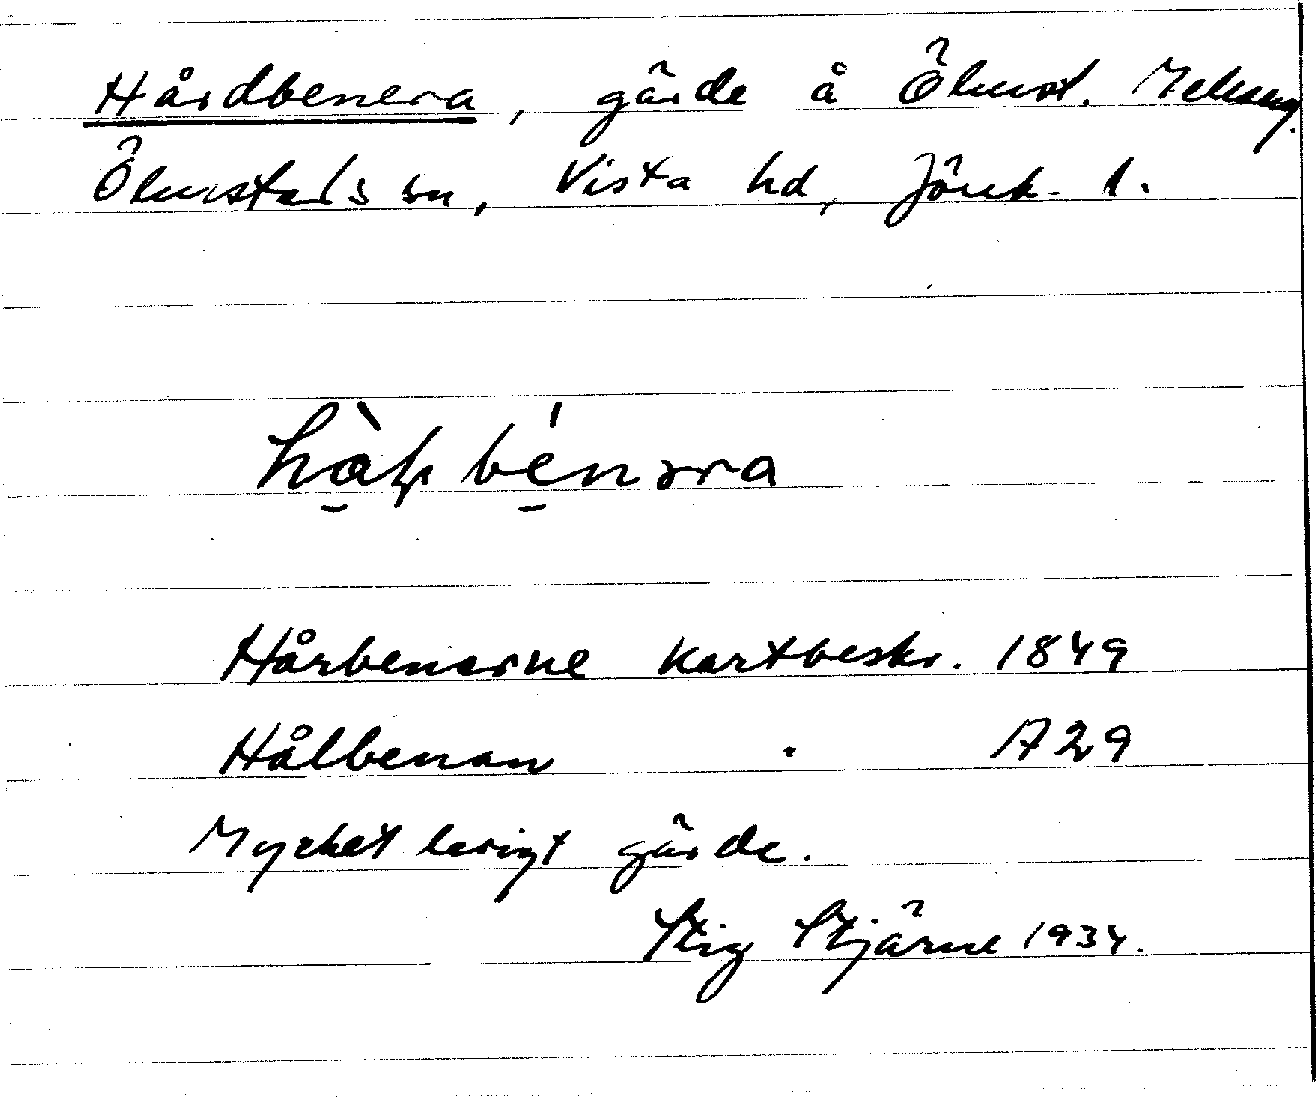 Hårdbenera, gärde å Ölmst. Mellang.
Ölmstads sn, Vista hd, Jönk. l.
Hårbenarne kartbeskr. 1849
Hålbenan " A29
Mycket lerigt gärde.
Stig Stjärne 1934.